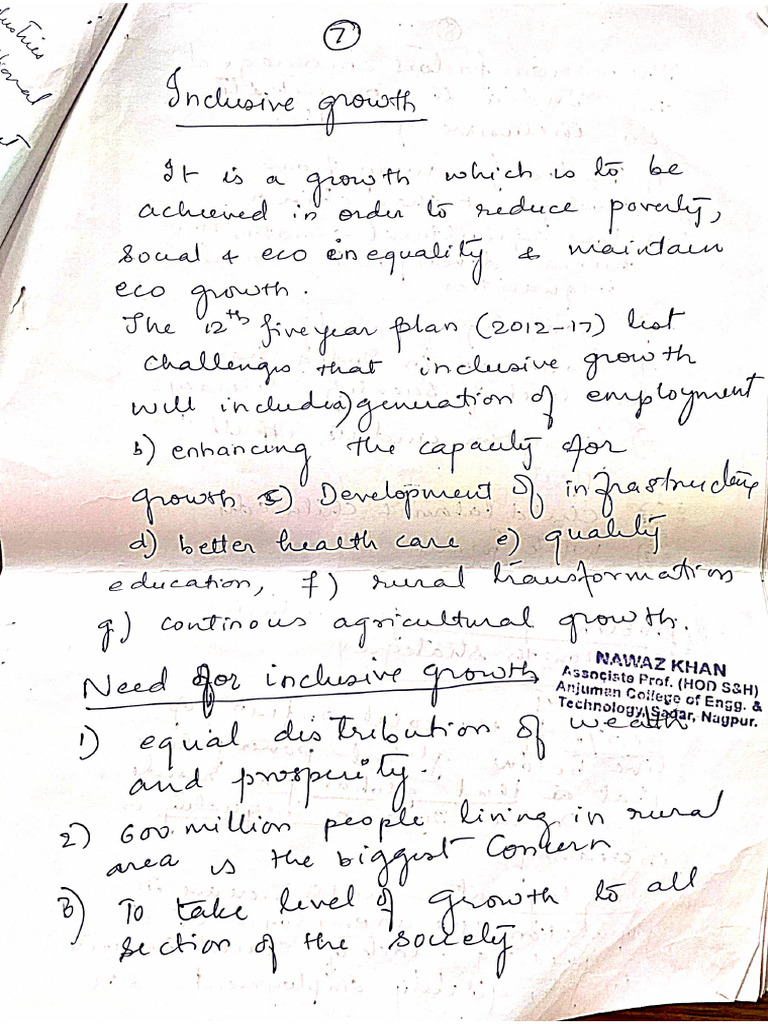 dustries
tional
7
Inclusive growth
It is a growth which is to be
achieved in order to reduce poverty,
social & eco inequality & maintain
eco growth.
The 12th five year plan (2012-17) list
challenges that inclusive growth
will include a) generation of employment
b) enhancing the capacity for
growth c) Development of infrastructure
d) better health care e) quality
education, f) rural transformation
g) continous agricultural growth.
Need for inclusive growth
NAWAZ KHAN
Associate Prof. (HOD S&H)
Anjuman College of Engg. &
Technology, Sadar, Nagpur.
1) equal distribution of wealth
and prosperity.
2) 600 million people living in rural
area is the biggest Concern
3) To take level of growth to all
section of the society